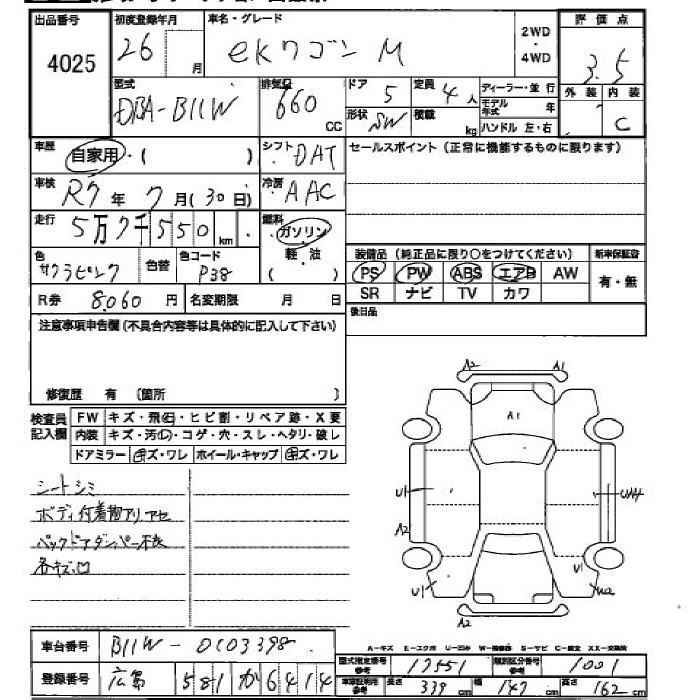 出品番号 初度登録年月 車名・グレード 2WD・4WD 評価点
4025 26 月 eKワゴン M 3.5
型式 排気量 ドア 定員 ディーラー・並行 外装 内装
DBA-B11W 660 CC 5 4人 モデル年式 年 C
形状 SW 積載 kg ハンドル 左・右
車歴 自家用・( ) シフト DAT セールスポイント(正常に機能するものに限ります)
車検 R7年 7月(30日) 冷房 AAC
走行 5万7千550km 燃料 ガソリン・軽・油 ( )
色 サクラピンク 色替 色コード P38
装備品(純正品に限り○をつけてください) 新車保証書
PS PW ABS エアB AW 有・無
SR ナビ TV カワ
R券 8060円 名変期限 月 日 後日品
注意事項申告欄(不具合内容等は具体的に記入して下さい)
修復歴 有 〔箇所 〕
検査員記入欄 FW キズ・飛石・ヒビ割・リペア跡・X要
内装 キズ・汚れ・コゲ・穴・スレ・ヘタリ・破レ
ドアミラー キズ・ワレ ホイール・キャップ キズ・ワレ
シートシミ
ボディ付着物アリ アセ
バックドアダンパー不良
各キズ凹
A2 A1
A1
U1
A2
U1 U1 W2
A2
A-キズ E-エクボ U-凹み W-補修跡 S-サビ C-腐食 XX-交換済
車台番号 B11W-0103398
型式指定番号 参考 17551 類別区分番号 参考 1001
登録番号 広島 581 か 6414
車庫証明用 参考 長さ 339cm 幅 147cm 高さ 162cm